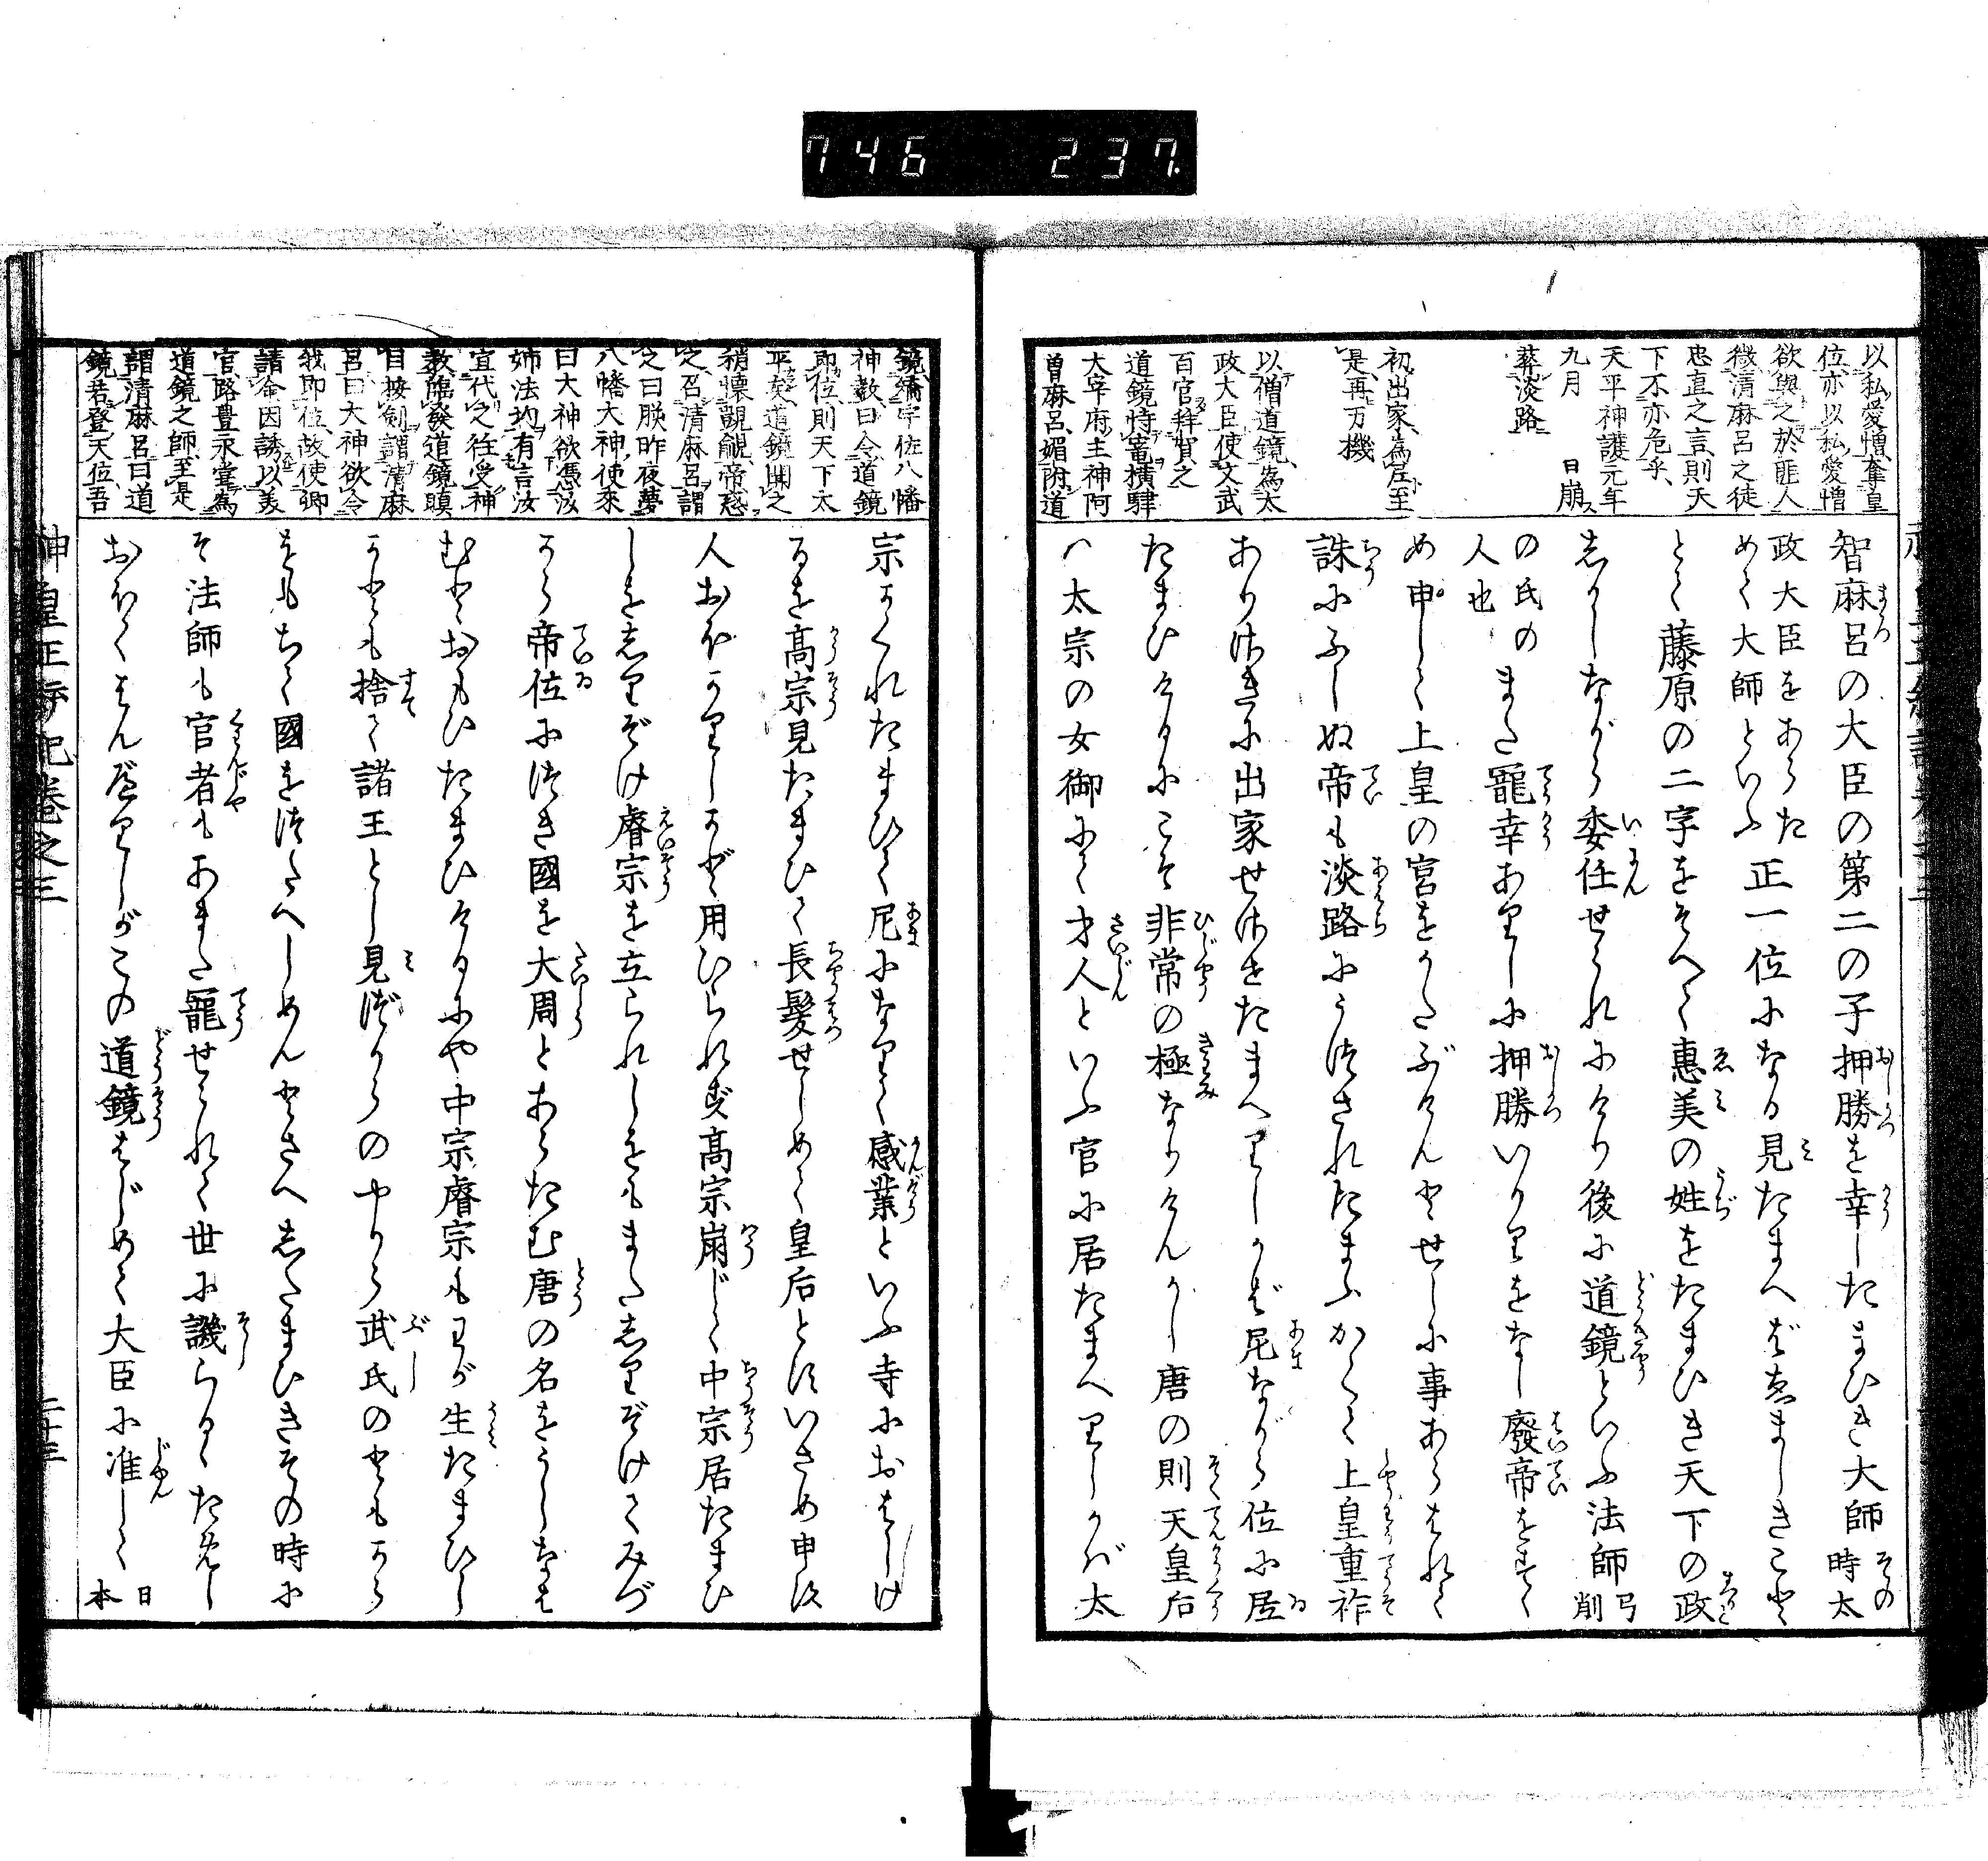 746 237.
以私愛憎奪皇
位亦以私愛憎
欲與之於匪人
微清麻呂之徒
忠直之言則天
下不亦危乎
天平神護元年
九月 日崩
葬淡路
初出家為尼至
是再万機
以僧道鏡為太
政大臣使文武
百官拜賀之
道鏡恃寵横肆
大宰府主神阿
曽麻呂媚附道
智麻呂の大臣の第二の子押勝を幸したまひき大師その時太
政大臣をあらためて大師といふ正一位になる見たまへばゑましきことゝ
とて藤原の二字をそへて惠美の姓をたまひき天下の政
しかしながら委任せられにけり後に道鏡といふ法師弓削
の氏の人也また寵幸ありしに押勝いかりをなし廢帝をすゝ
め申して上皇の宮をかたぶけんとせしに事あらはれて
誅にふしぬ帝も淡路にうつされたまふかくて上皇重祚
ありさきに出家せさせたまへりしかば尼ながら位に居
たまひけるにこそ非常の極なりけんかし唐の則天皇后
ハ太宗の女御にて才人といふ官に居たまへりしかば太
鏡矯宇佐八幡
神敎曰令道鏡
即位則天下太
平矣道鏡聞之
稍懷覬覦帝惑
之召清麻呂謂
之曰朕昨夜夢
八幡大神使來
曰大神欲憑汝
姉法均有言汝
宜代之往受神
敎臨發道鏡瞋
目按劍謂清麻
呂曰大神欲令
我即位故使卿
請命因誘以美
官路豊永嘗為
道鏡之師至是
謂清麻呂曰道
鏡若登天位吾
宗かくれたまひて尼になりて感業といふ寺におはしけ
るを高宗見たまひて長髮せしめて皇后とすいさめ申す
人おほかりしかど用ひられず高宗崩じて中宗居たまひ
しをしりぞけ睿宗を立られしをもまたしりぞけてみづ
から帝位につき國を大周とあらたむ唐の名をうしなは
むとおもひたまひけるにや中宗睿宗もわが生たまひし
かども捨て諸王とし見づからのやから武氏のともから
をもちて國をつたへしめんとさへしたまひきその時に
そ法師も官者もあまた寵せられて世に譏らるゝたぬし
おほくはんべりしがこの道鏡はじめて大臣に准して日本
神皇正統記卷之三
二十三